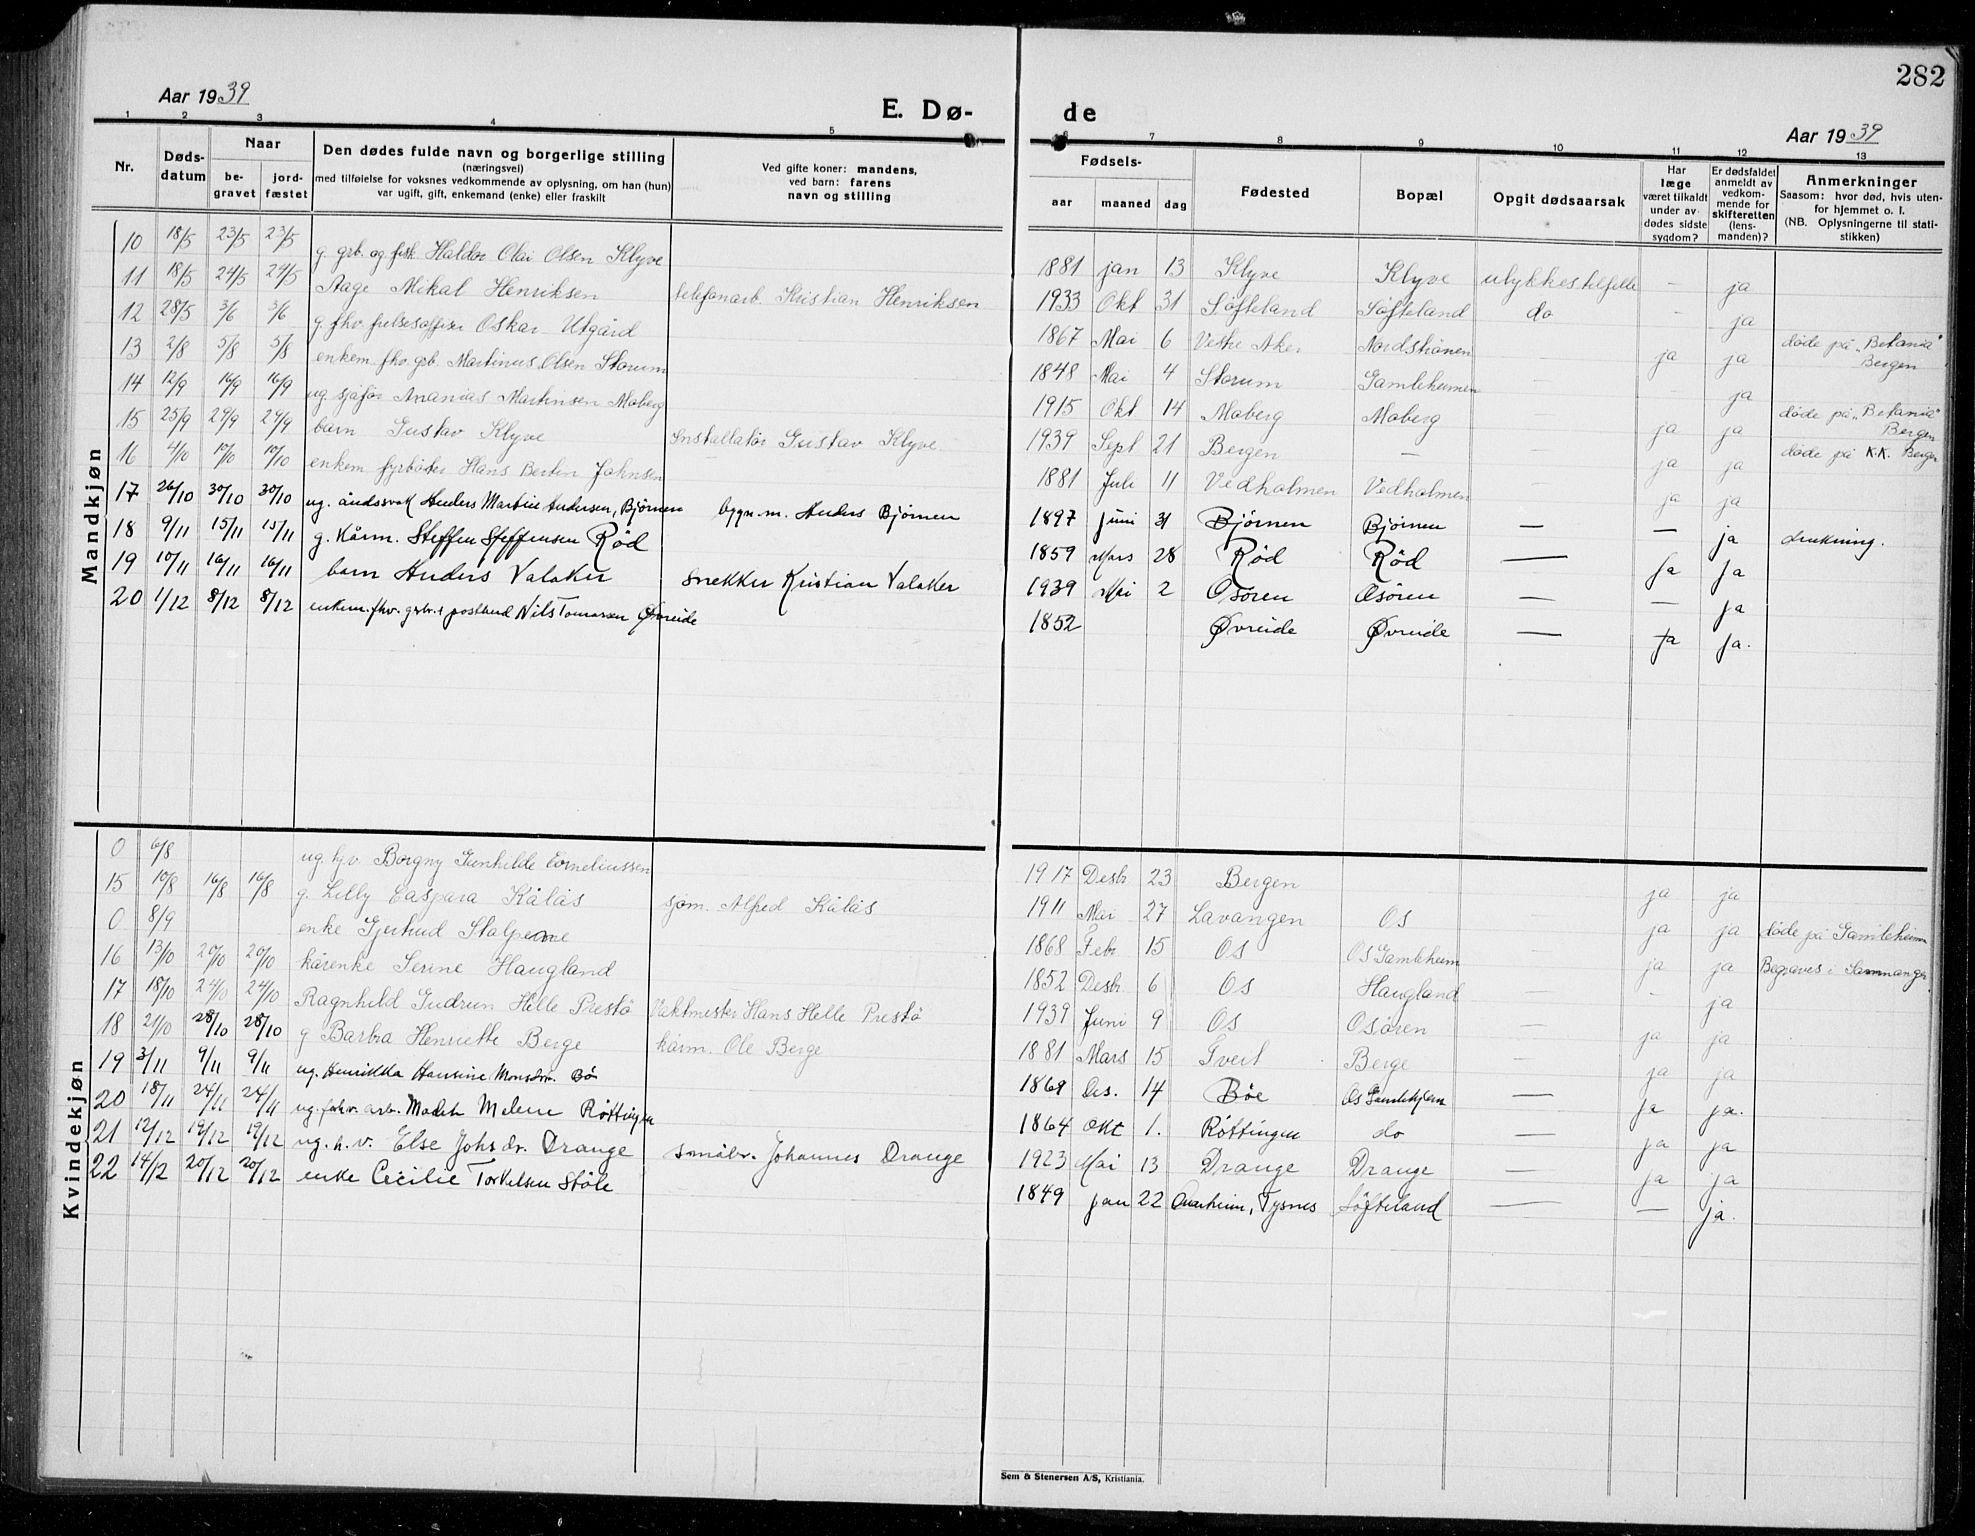 282
Aar 1939
E. Dø-
de
Aar 1939
1 2 3 4 5 6 7 8 9 10 11 12 13
Nr.
Døds-
datum
Naar
be-
gravet
jord-
fæstet
Den dødes fulde navn og borgerlige stilling
(næringsvei)
med tilføielse for voksnes vedkommende av oplysning, om han (hun)
var ugift, gift, enkemand (enke) eller fraskilt
Ved gifte koner: mandens,
ved barn: farens
navn og stilling
Fødsels-
aar maaned dag
Fødested
Bopæl
Opgit dødsaarsak
Har
læge
været tilkaldt
under av-
dødes sidste
sygdom?
Er dødsfaldet
anmeldt av
vedkom-
mende for
skifteretten
(lens-
manden)?
Anmerkninger
Saasom: hvor død, hvis uten-
for hjemmet o. l.
(NB. Oplysningerne til stati-
stikken)
Mandkjøn
10 18/5 23/5 23/5 g. grb. og fisk Haldor Olai Olsen Klyve 1881 jan 13 Klyve Klyve ulykkestilfelle - ja
11 18/5 24/5 24/5 Aage Mikal Henriksen telefonarb. Kristian Henriksen 1933 Okt 31 Søfteland Søfteland do - ja
12 28/5 3/6 3/6 g. fhv. frelsesoffiser Oskar Utgård 1867 Mai 6 Vestre Aker Nordstrønen - ja ja døde på "Betania" Bergen
13 2/8 5/8 5/8 enkem. fhv. grb. Martinus Olsen Storum 1848 Mai 4 Storum Gamleheimen - - ja
14 12/9 16/9 16/9 ug sjåfør Ananias Martinsen Moberg 1915 Okt 14 Moberg Moberg - ja ja døde på "Betania" Bergen
15 25/9 29/9 29/9 barn Gustav Klyve Installatør Gustav Klyve 1939 Sept 21 Bergen - - ja ja døde på K.K. Bergen
16 4/10 10/10 enkem fyrbøter Hans Bertin Johnsen 1881 Juli 11 Vedholmen Vedholmen ja ja
17 26/10 30/10 30/10 ug. åndssvak Anders Martin Andersen, Bjørnen bygn.m. Anders Bjørnen 1897 juni 31 Bjørnen Bjørnen — — ja drukning.
18 9/11 15/11 15/11 g. Kårm. Steffen Steffensen Rød 1859 Mars 28 Rød Rød — ja ja
19 10/11 16/11 16/11 barn Anders Valaker Snekker Kristian Valaker 1939 Mai 2 Osøren Osøren — — ja
20 1/12 8/12 8/12 enkem. fhv. grb. & postbud Nils Tomassen Øvreide 1852 Øvreide Øvreide — ja ja.
Kvindekjøn
0 6/8 ug. hv. Borgny Gunhilde Corneliussen 1917 Desbr 23 Bergen ja ja
15 10/8 16/8 16/8 g. Lilly Caspara Kålås sjøm. Alfred Kålås 1911 Mai 27 Lavangen Os ja ja døde på Gamleheimen
0 8/9 enke Gjertrud 1868 Febr 15 Os Os Gamleheim ja ja Begraves i Samnanger
16 13/10 20/10 20/10 kårenke Serine Haugland 1852 Desbr 6 Os Haugland - - ja
17 18/10 24/10 24/10 Ragnhild Gudrun Helle Prestø Vaktmester Hans Helle Prestø 1939 Juni 9 Os Osøren - ja ja
18 21/10 28/10 28/10 g Barbra Henriette Berge kårm. Ole Berge 1881 Mars 15 Tveit Berge - ja ja
19 3/11 9/11 9/11 ug. Henrikka Hansine Monsdtr. Bø 1869 Des. 14 Bøe Os Gamlehjem — ja ja.
20 18/11 24/11 24/11 ug. forhv. arb. Malene Røttingen 1864 Okt 1. Røttingen do — ja ja
21 12/12 19/12 19/12 ug. h.v. Else Johs.dr. Drange småbr. Johannes Drange 1923 Mai 13 Drange Drange — ja ja
22 14/12 20/12 20/12 enke Cecilie Torkelsen Støle 1849 jan 22 Onarheim, Tysnes Søfteland — — ja.
Sem & Stenersen A/S, Kristiania.